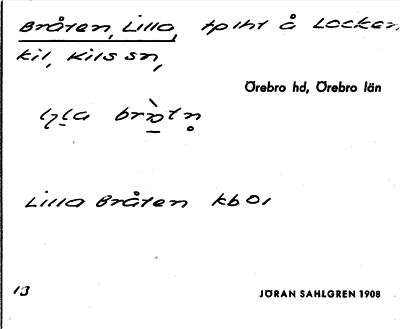 Bråten, Lilla, tplht å Locker,
kil, Kils sn,
Örebro hd, Örebro län
Lilla Bråten kb 01
13
JÖRAN SAHLGREN 1908